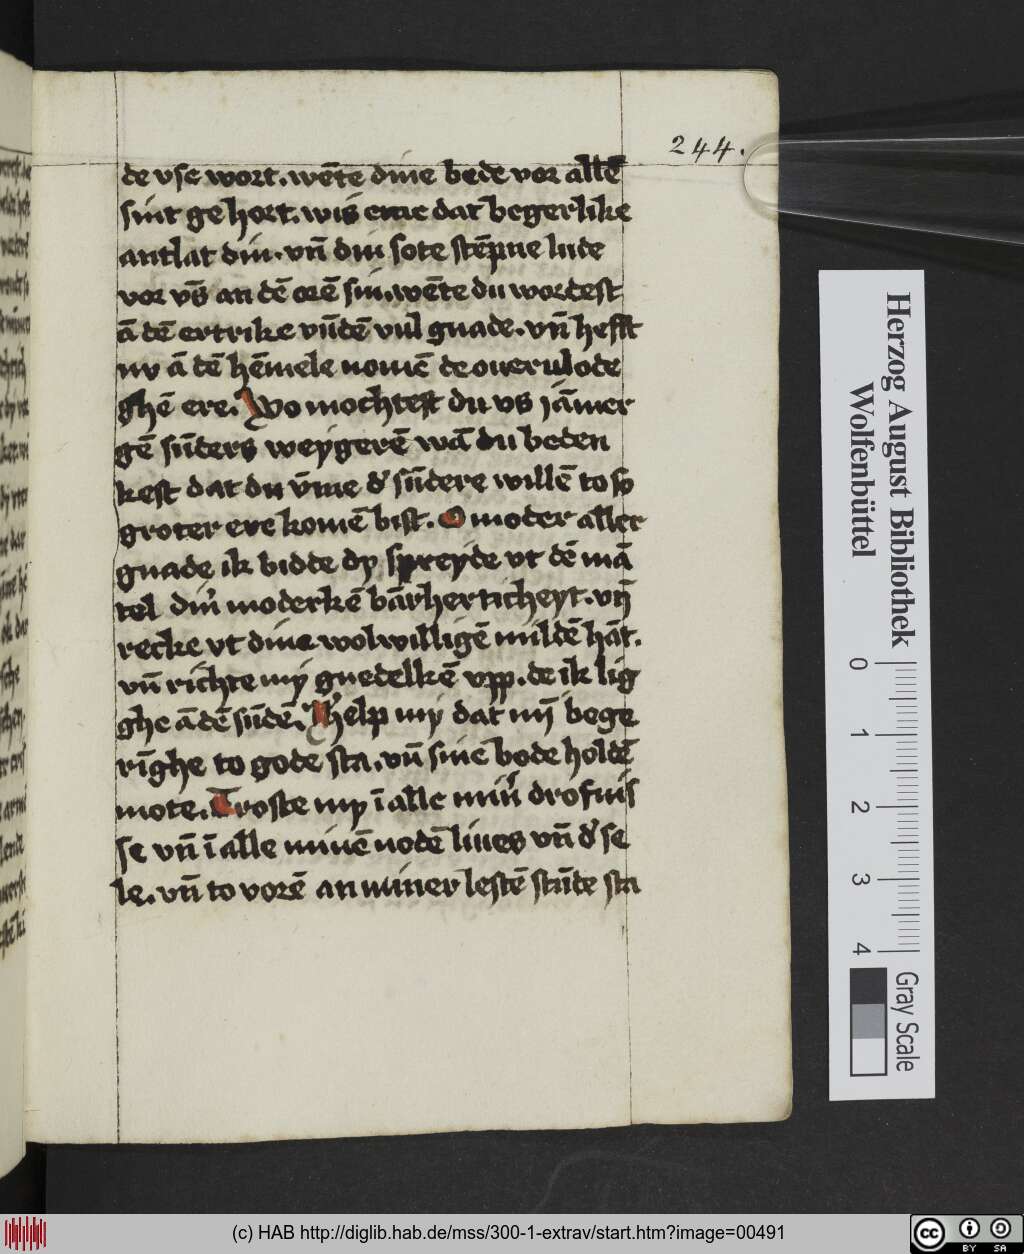 244.
de vse wort. wēte dine bede vor allē
sint ge hort. wis eme dat begerlike
antlat din. vn̄ din sote stēpne lude
vor vs̄ an dē orē sin. wēte du wordest
ā dē ertrike vūdē vul gnade. vn̄ hefft
nv ā dē hēmele nomē de ouer vlode
ghē ere. Wo mochtest du vs jāmer
gē sūders weygerē wā du beden
kest dat du v̄me d' sūdere willē to so
groter ere komē bist. O moder aller
gnade ik bidde dy spreyde vt dē mā
tel din' moderkē bārherticheyt. vn̄
recke vt dine wolwilligē mildē hāt.
vn̄ richte my gnedelkē vpp. de ik lig
ghe ā dē sūdē. help my dat mī bege
rīghe to gode sta. vn̄ sine bode holdē
mote. Troste my ī alle min' drofnis
se vn̄ ī alle minē nodē liues vn̄ d' se
le. vn̄ to vorē an miner lestē stūde sta
Herzog August Bibliothek
Wolfenbüttel
0 1 2 3 4
Gray Scale
(c) HAB http://diglib.hab.de/mss/300-1-extrav/start.htm?image=00491
cc BY SA